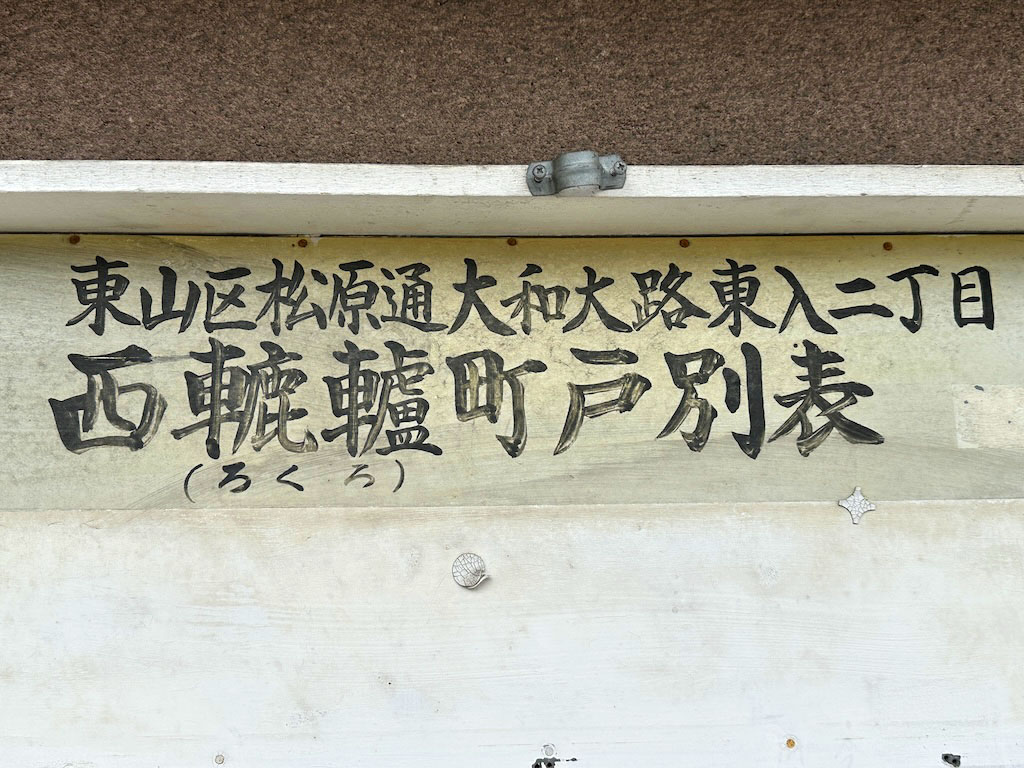 東山区松原通大和大路東入二丁目
西轆轤町戸別表
(ろくろ)